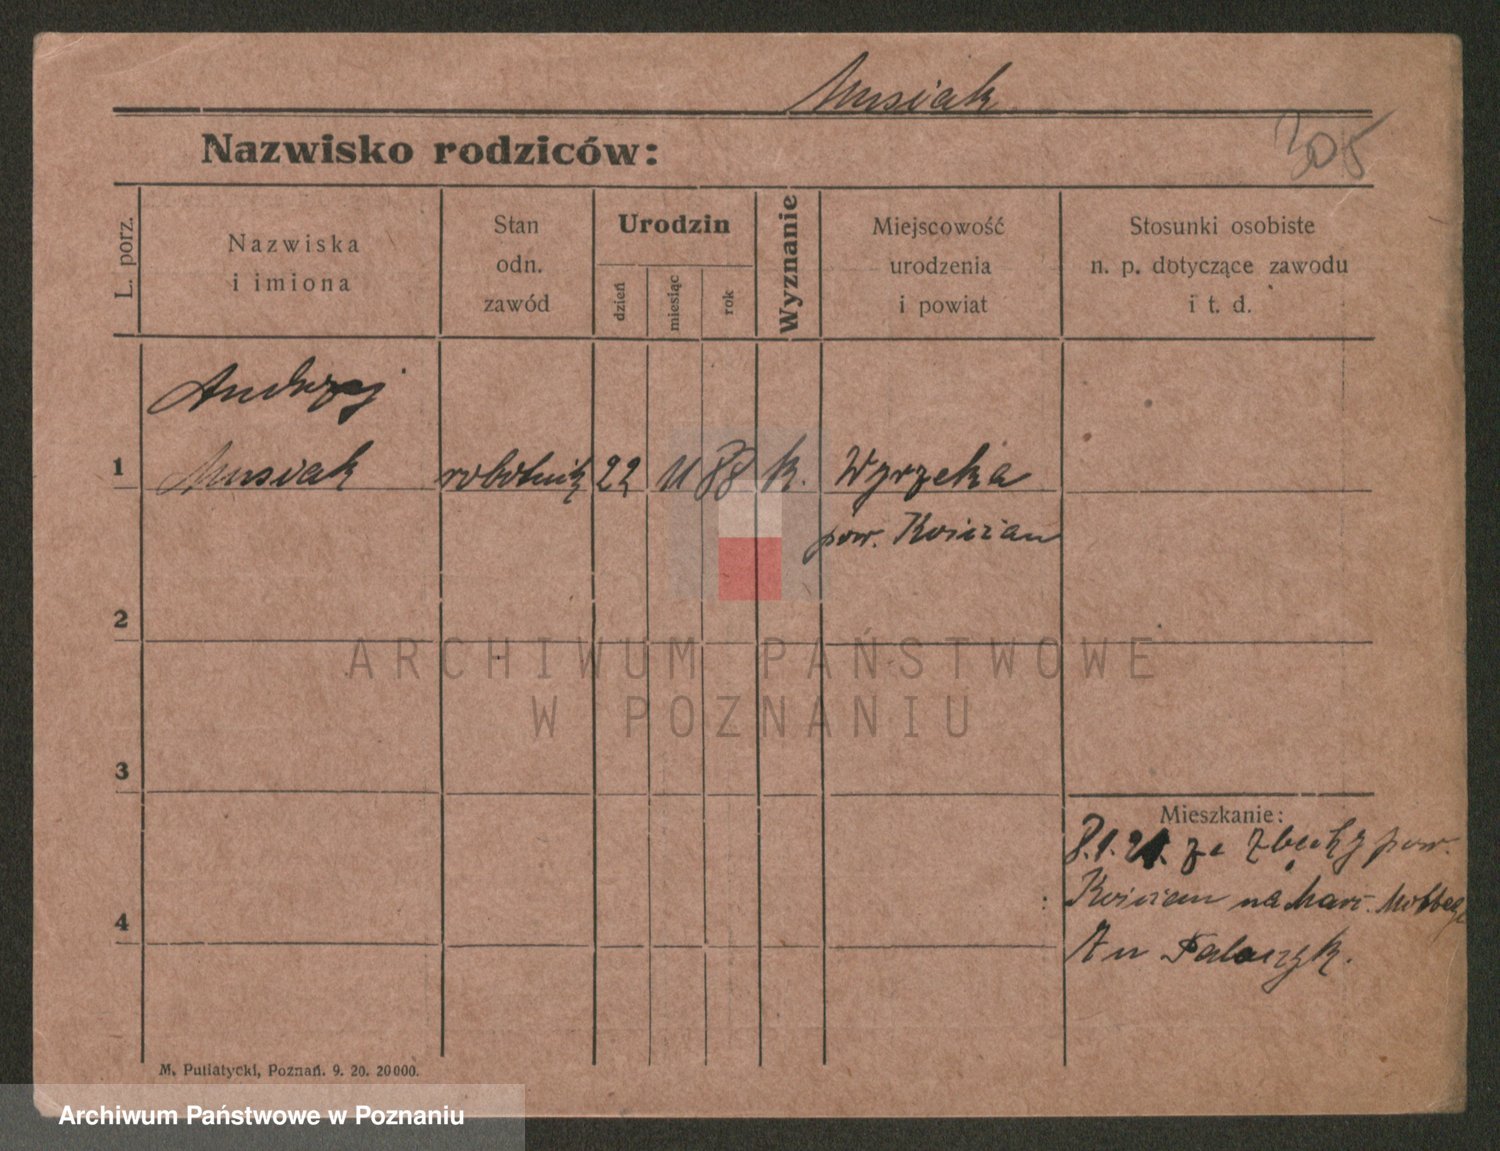 Musiak
305
Nazwisko rodziców:
L. porz.
Nazwiska
i imiona
Stan
odn.
zawód
Urodzin
dzień
miesiąc
rok
Wyznanie
Miejscowość
urodzenia
i powiat
Stosunki osobiste
n. p. dotyczące zawodu
i t. d.
Andrzej
1 Musiak robotnik 22 11 88 k. Wyrzeka
pow. Kościan
2
ARCHIWUM PAŃSTWOWE
W POZNANIU
3
Mieszkanie:
8.1.21. ze Zbęchy pow.
4 Kościan na
M. Putiatycki, Poznań. 9. 20. 20000.
Archiwum Państwowe w Poznaniu